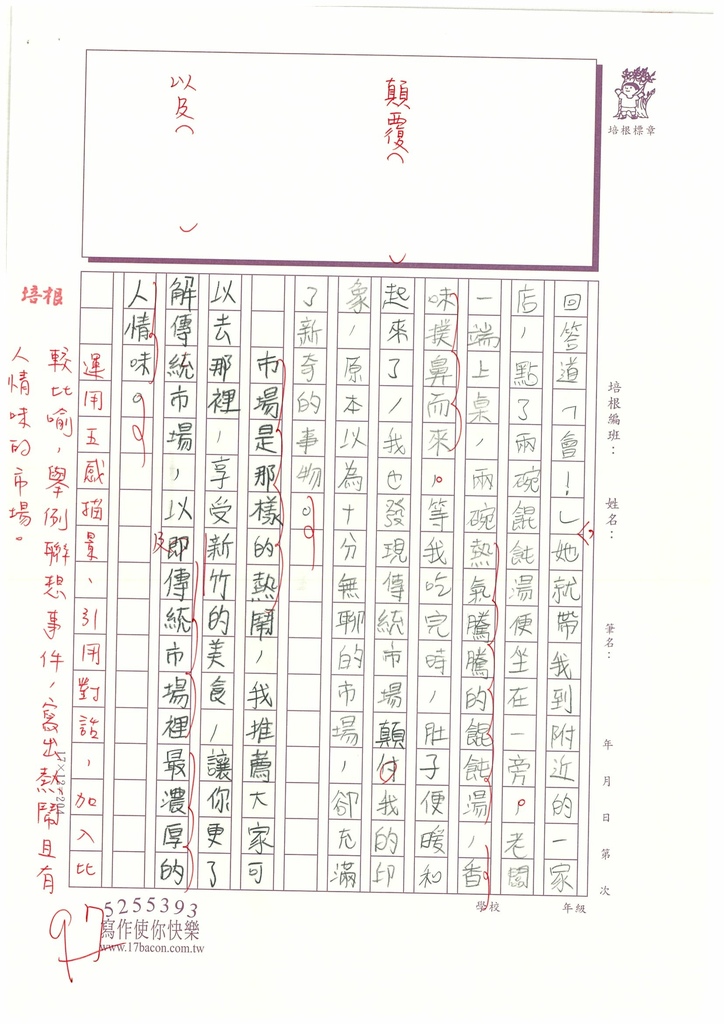 顛覆（　）
以及（　）
培根標章
培根編班：
姓名：
筆名：
年　月　日　第　次
學校
年級
回答道「會！」她就帶我到附近的一家
店，點了兩碗餛飩湯便坐在一旁，老闆
一端上桌，兩碗熱氣騰騰的餛飩湯，香
味撲鼻而來，等我吃完時，肚子便暖和
起來了，我也發現傳統市場顛付我的印
象，原本以為十分無聊的市場，卻充滿
了新奇的事物。
市場是那樣的熱鬧，我推薦大家可
以去那裡，享受新竹的美食，讓你更了
解傳統市場，以即傳統市場裡最濃厚的
人情味。
及
培根
運用五感描景、引用對話，加入比
較比喻，舉例聯想事件，寫出熱鬧且有
人情味的市場。
17×12=204
97
5255393
寫作使你快樂
www.17bacon.com.tw